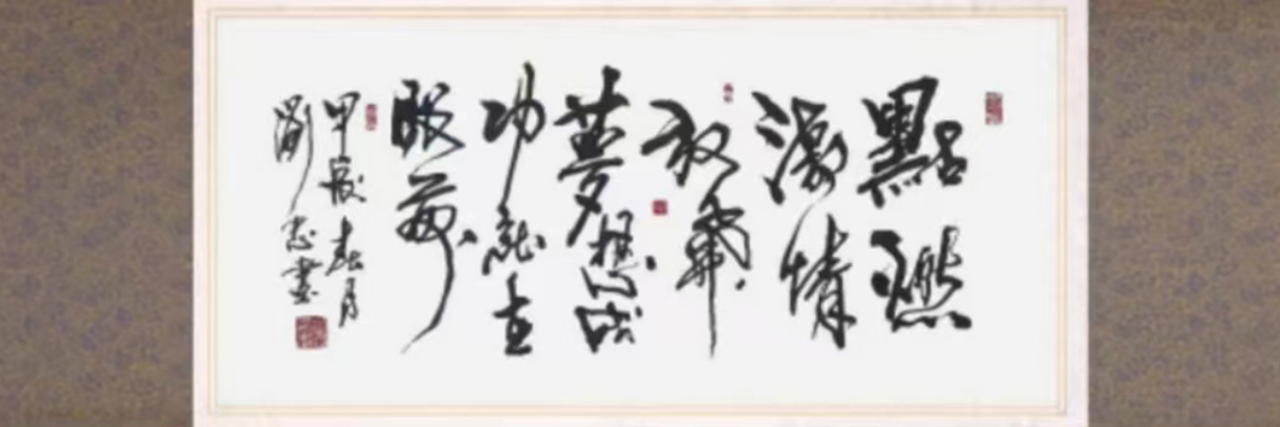 點燃
激情
放飛
夢想成
功就在
眼前
甲辰春月
劉書